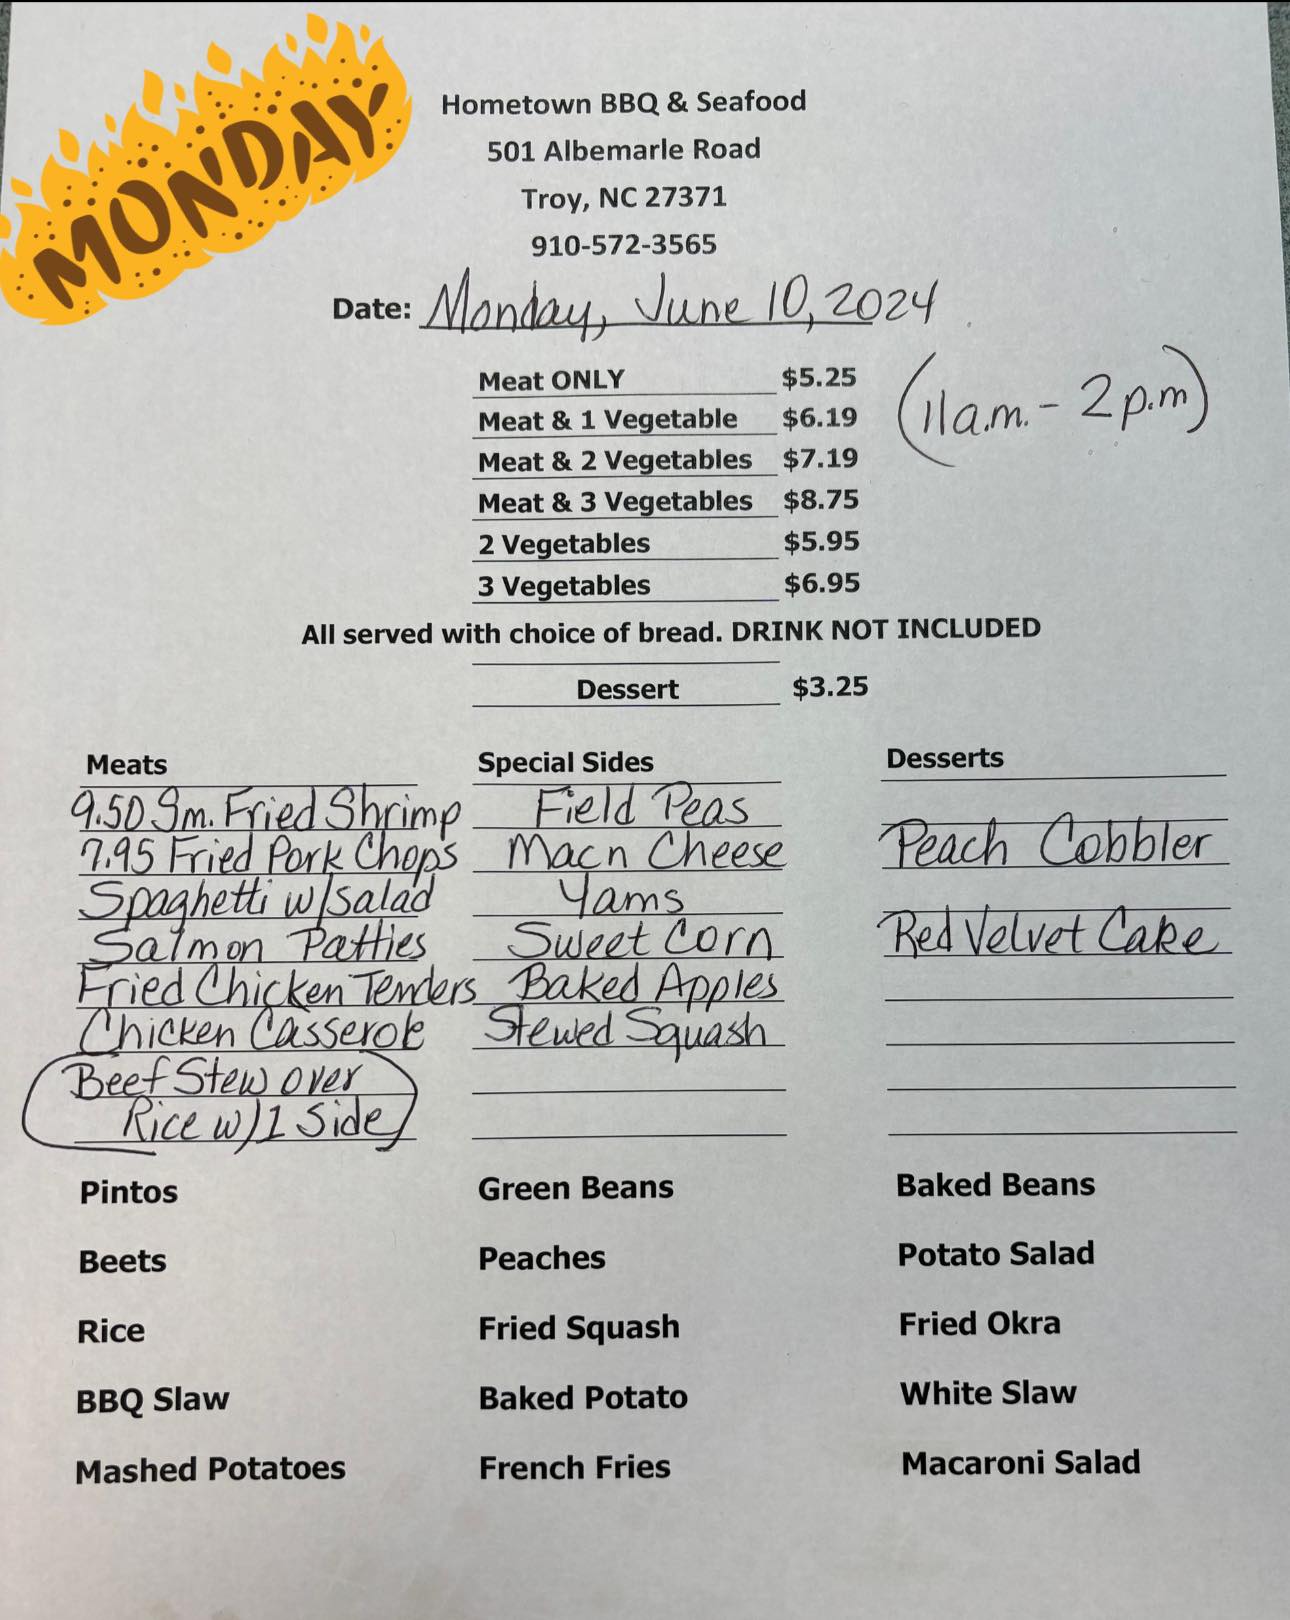 MONDAY
Hometown BBQ & Seafood
501 Albemarle Road
Troy, NC 27371
910-572-3565
Date: Monday, June 10, 2024
(11a.m. - 2p.m)
Meat ONLY $5.25
Meat & 1 Vegetable $6.19
Meat & 2 Vegetables $7.19
Meat & 3 Vegetables $8.75
2 Vegetables $5.95
3 Vegetables $6.95
All served with choice of bread. DRINK NOT INCLUDED
Dessert $3.25
Meats
9.50 Sm. Fried Shrimp
7.95 Fried Pork Chops
Spaghetti w/salad
Salmon Patties
Fried Chicken Tenders
Chicken Casserole
Beef Stew over
Rice w/1 Side
Special Sides
Field Peas
Mac n Cheese
Yams
Sweet Corn
Baked Apples
Stewed Squash
Desserts
Peach Cobbler
Red Velvet Cake
Pintos Green Beans Baked Beans
Beets Peaches Potato Salad
Rice Fried Squash Fried Okra
BBQ Slaw Baked Potato White Slaw
Mashed Potatoes French Fries Macaroni Salad